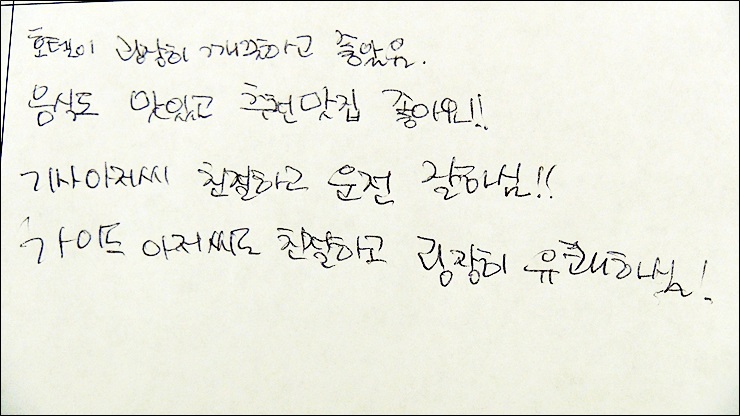 호텔이 굉장히 깨끗하고 좋았음.
음식도 맛있고 추천맛집 좋아요!!
기사아저씨 친절하고 운전 잘하심!!
가이드 아저씨도 친절하고 굉장히 유쾌하심!